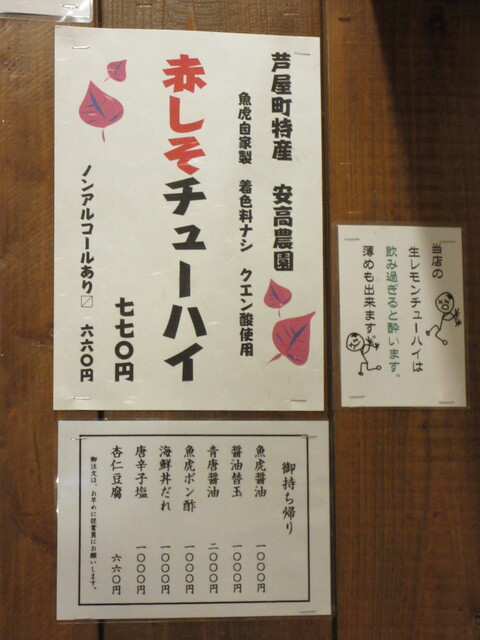 芦屋町特産 安高農園
魚虎自家製 着色料ナシ クエン酸使用
赤しそチューハイ
七七〇円
ノンアルコールあり〼 六六〇円
当店の
生レモンチューハイは
飲み過ぎると酔います。
薄めも出来ます。
御持ち帰り
魚虎醤油 一〇〇〇円
醤油替玉 一〇〇〇円
青唐醤油 二〇〇〇円
魚虎ポン酢 一〇〇〇円
海鮮丼だれ 一〇〇〇円
唐辛子塩 一〇〇〇円
杏仁豆腐 六六〇円
御注文は、お早めに従業員にお願いします。